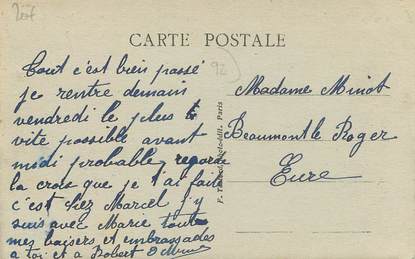 CARTE POSTALE
92
Tout c'est bien passé
je rentre demain
vendredi le plus
vite possible avant
midi probable, regarde
la croix que je t'ai fait
c'est chez Marcel j'y
suis avec Marie toute
mes baisers et embrassades
a toi et a Robert
Madame Minot
Beaumont le Roger
Eure